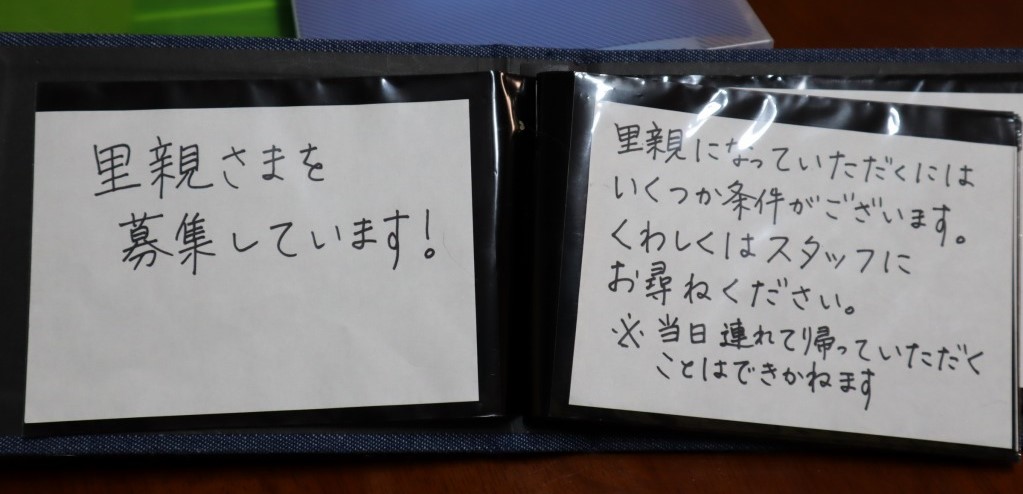 里親さまを
募集しています!
里親になっていただくには
いくつか条件がございます。
くわしくはスタッフに
お尋ねください。
※当日連れて帰っていただく
ことはできかねます